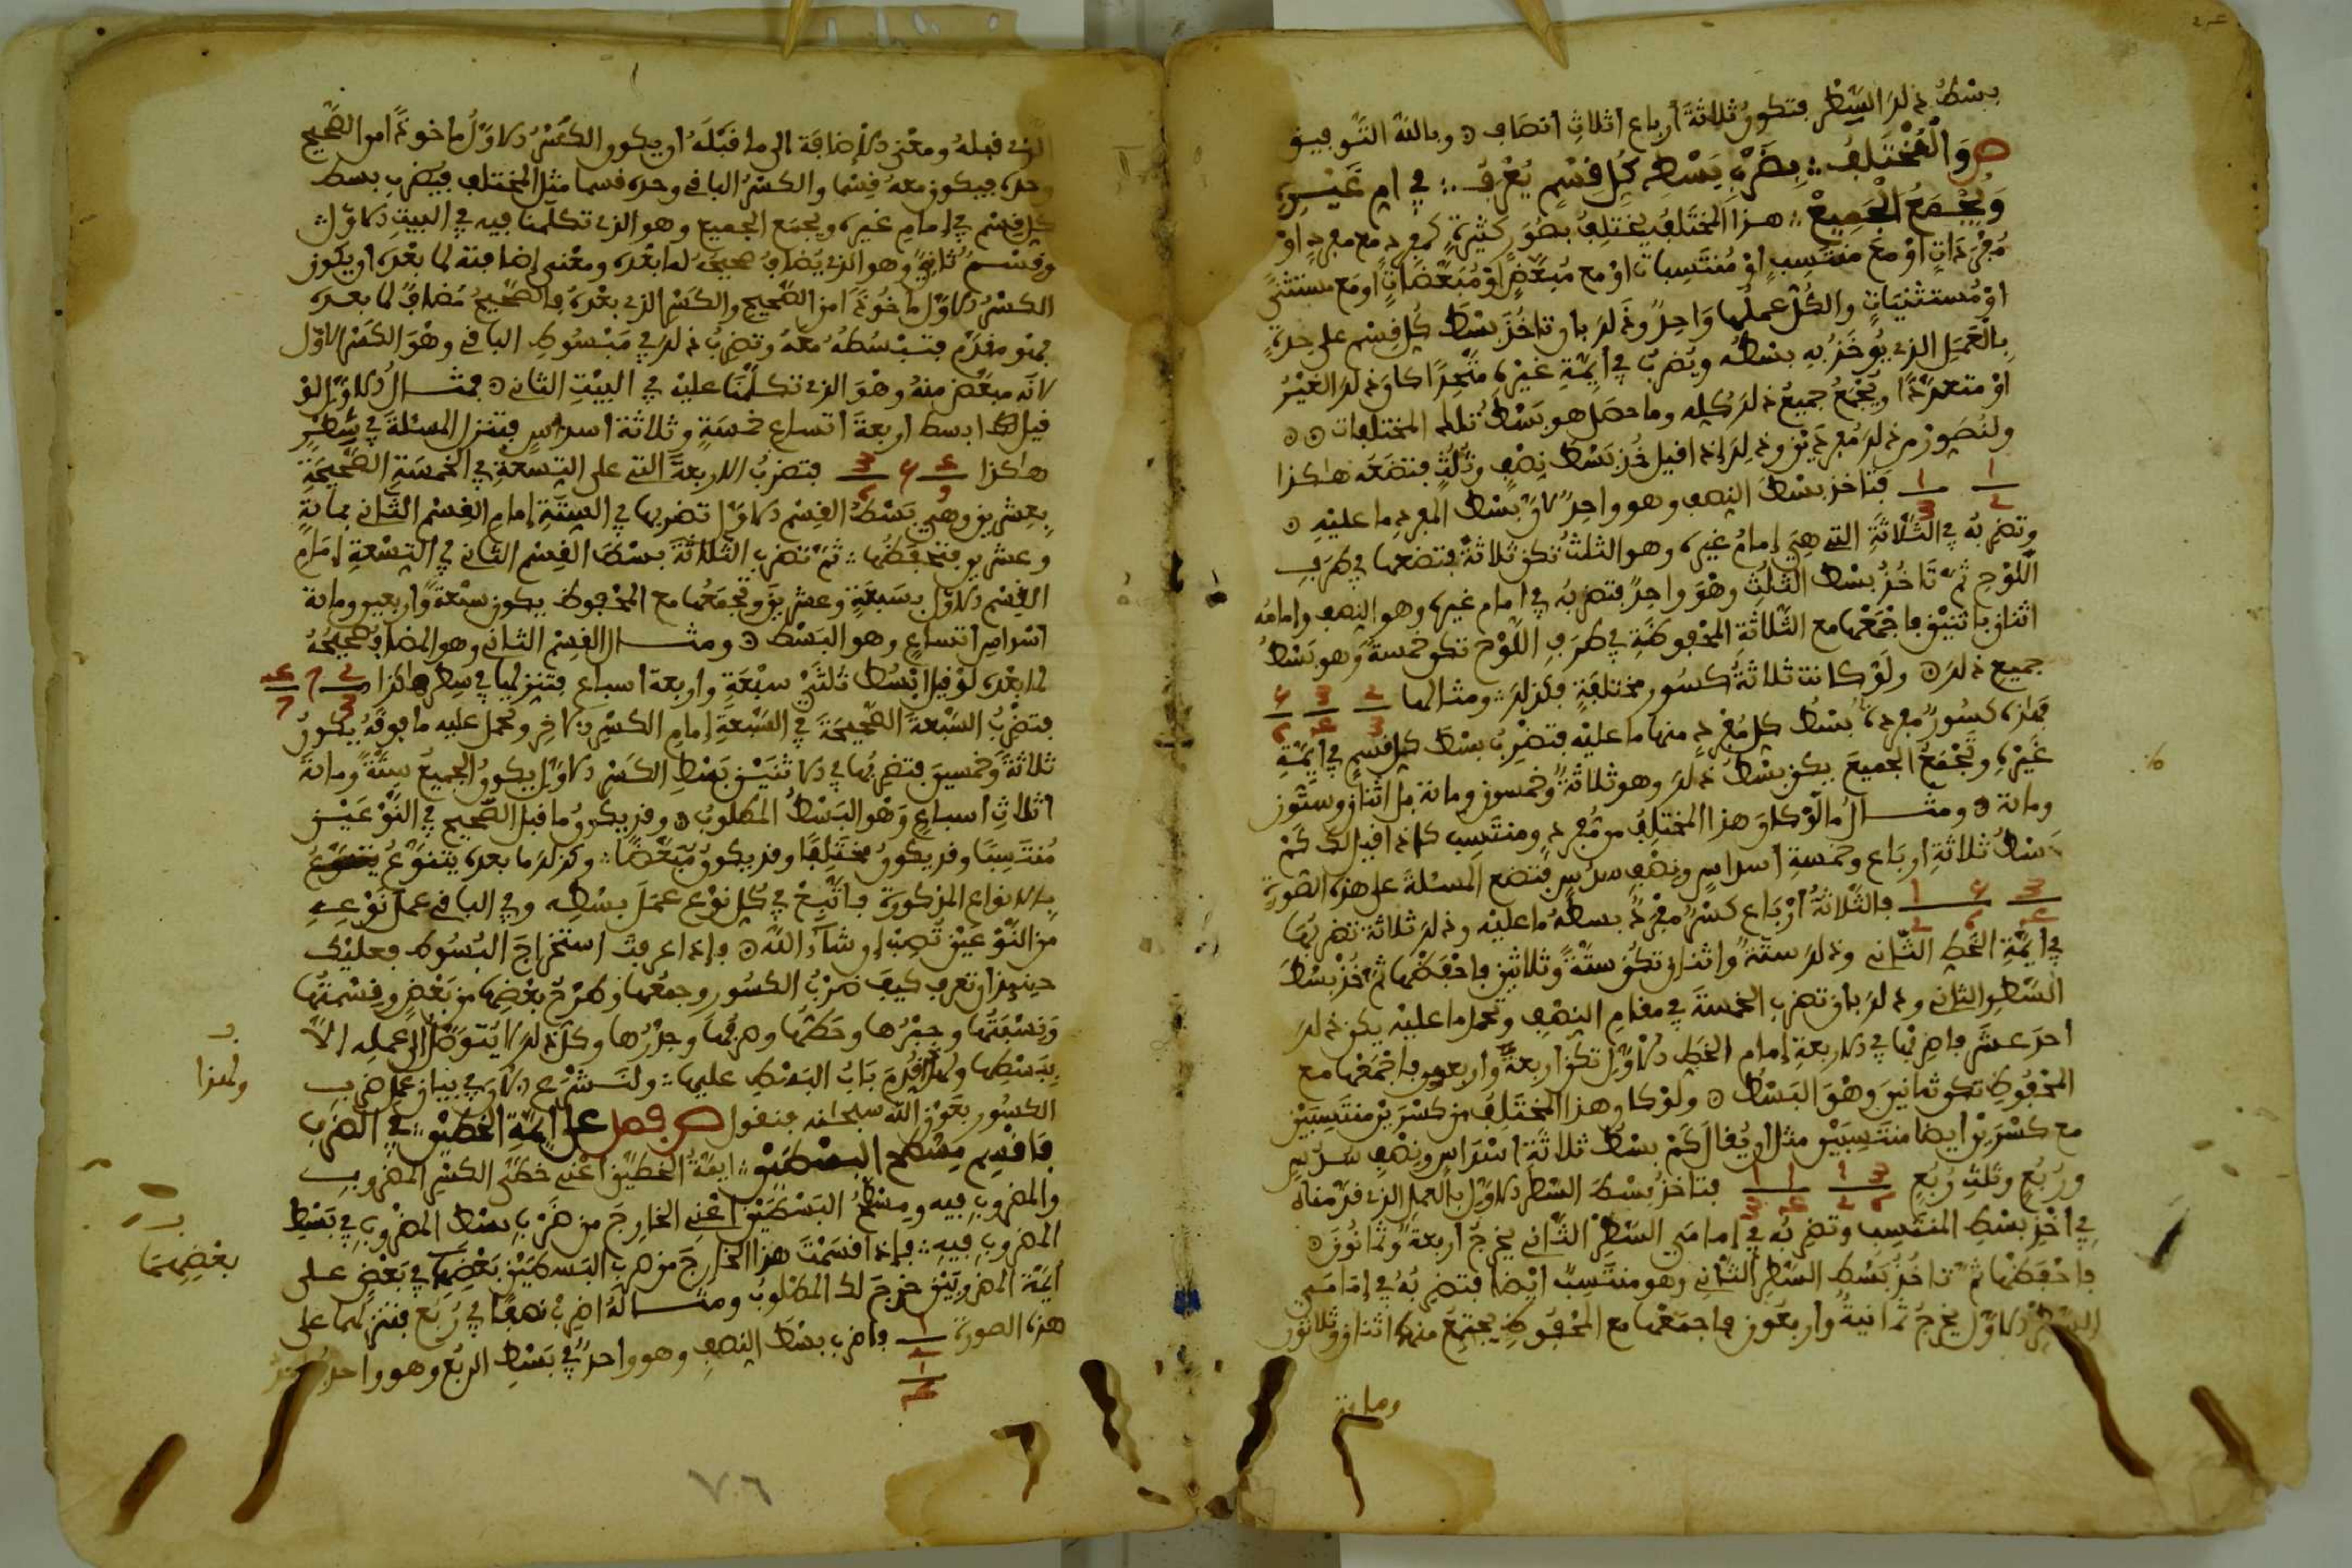 بسْطُ ذلك السَّطْرِ فتكون ثلاثةَ أرباع أثلاثِ أنصافٍ وبالله التَّوفيق
ص وَالْمُخْتَلِفُ بِضَرْبِ بَسْطِ كُلِّ قِسْمٍ يُعْرَفُ في امِ غَيْرِهِ
وَيُجْمَعُ الْجَمِيعْ هذا المختَلِفُ يَختلِفُ بصُوَرٍ كثيرةٍ كمفرد مع مفردٍ اوْ
مُفْرَدَاتٍ اوْ مَعَ منتَسِبٍ اوْ مُنتَسِباتٍ اوْ مع مُبعَّضٍ اوْ مُبَعَّضَاتٍ او مَع مستثنًى
اوْ مُستثْنَيَاتٍ والكُلّ عملُها وَاحِدٌ وذَلك بان تاخُذَ بسْطَ كُلِّ قِسْمٍ على حِدَةٍ
بالْعَمَلِ الذي يُؤخَذُ بِهِ بسْطُه ويُضربُ في ايِمّةِ غيْرِهِ متّحِدًا كان ذلك الغيْرُ
اوْ متعدِّدًا ويُجْمَعُ جميعُ ذلك كلِّه وما حصَل هو بَسْطُ تلك المختلفات
ولنُصَوِّرْ من ذلك مُفردَيْن وذلك إذا قيل خُذْ بَسْطَ نِصْفٍ وثُلُثٍ فتضَعُه هاكذا
1/2 1/3 فتاخذ بسْطَ النصف وهو واحِدٌ لانّ بسْطَ المفرد ما عليْهِ
وتضربُه في الثّلاثةِ التي هِيَ إمامُ غيرِه وهو الثلثُ تكن ثلاثةً فتضعها في طَرَفِ
اللّوْحِ ثمّ تَاخُذُ بسْطَ الثلُثِ وهْوَ واحِدٌ فتضربُه في امام غيرِه وهو النصف وامامُه
اثنان باثنيْن فاجْمَعْها مع الثّلاثةِ المحفوظةِ في طَرَفِ اللّوْحِ تكن خمسةً وَهو بَسْطُ
جميع ذلك ولَوْ كانت ثلاثةُ كسُورٍ مختلفةٍ فكذلك ومثالها 2/3 3/4 4/5
فهذه كسُورٌ مفردة بسْطُ كلّ مُفْردٍ منها ما عليْه فتضْرِبُ بسْطَ كل قسمٍ في ايِمّةِ
غيْرِهِ وتجْمَعُ الجميعَ يكن بسْطُ ذلك وهو ثلاثةٌ وخمسون ومائة بل اثنان وستّون
ومائة ومثالُ ما لوْ كان هذا المختلِفُ من مُفردٍ ومنتَسِبٍ كإذا قيل لك كمْ
بَسْطُ ثلاثةِ أرباع وخمسةِ اسداسٍ ونصْفِ سدسٍ فتضع المسئلةَ على هذه الصّورةِ
فالثّلاثةُ أرْبَاع كسْرٌ مُفْردٌ بسطُه ما عليْه وذلك ثلاثةٌ تضربُها
في ايِمّةِ الخَطِّ الثّاني وذلك ستّةٌ واثنان تكنْ ستّةً وثلاثين فاحْفَظْها ثمّ خُذْ بسْطَ
السَّطْرِ الثاني وذلك بان تضرب الخمسةَ في مقامِ النصْفِ وتحمل ما عليْه يكن ذلك
احدَ عشَر فاضرِبْها في الاربعةِ إمامِ الخَطِّ الاوّلِ تكنْ اربعةً واربعين فاجْمَعْها مع
المحْفُوظِ تكن ثمانينَ وهْوَ البَسْطُ ولوْ كان هذا المختَلِفُ من كسْرَيْنِ منتَسِبَيْن
مع كسْرَيْن أيضا منتَسِبَيْن مثل ان يُقالَ كمْ بسْطُ ثلاثةِ أسْدَاسٍ ونِصْفِ سدُسٍ
ورُبُعٍ وثلثِ رُبُعٍ فتاخذُ بسْطَ السّطْرِ الاوّلِ بالعملِ الذي قدّمناهُ
في اخْذِ بسْطِ المنتَسِبِ وتضربُه في امامَيِ السّطْرِ الثّاني يخرجْ أربعةٌ وثمانُونَ
فاحْفظْها ثمّ تاخُذُ بَسْطَ السّطرِ الثّاني وهو منتَسِبٌ ايْضا فتضربُهُ في إمَامَيِ
السطْرِ الاوّلِ يخرجُ ثمانيةٌ واربعُون فاجمَعْها مع المحْفوظِ يجتمعْ منها اثنان وثلاثون
ومائة
الذي قبلهُ ومعْنى الإضافة إلى ما قبْلَهُ ان يكون الكسْرُ الاوّلُ ماخوذًا من الصّحيح
وحده فيكون معه قِسْما والكسْرُ الباقي وحده قسما مثل المختلف فيضرب بسط
كل قِسْمٍ في إمامِ غيره ويُجمَع الجميع وهو الذي تكلّمنا فيه في البيتِ الاوّل
وقِسْمٌ ثانٍ وهو الذي يُضافُ صحيحُه لما بعْده ومعْنى إضافته لما بعْدَه ان يكون
الكسْرُ الاوّل ماخُوذًا من الصّحيح والكسْرِ الذي بعْدَهُ فالصّحيحُ مُضافٌ لما بعده
فهو مقدّم فتبْسُطُهُ معهُ وتضربُ ذلك في مَبْسُوطِ الباقي وهْوَ الكسْرُ الاوّل
لانّه مبعّض منهُ وهْوَ الذي تكلّمْنا عليْه في البيْتِ الثاني فمثالُ الاوّلِ لوْ
قيل لك ابسط اربعةَ اتساعِ خمسةٍ وثلاثة اسداسٍ فتنزل المسئلةَ في سَطْرٍ
هاكذا فتضربُ الاربعةَ التي على التِسعةِ في الخمسَةِ الصّحيحَةِ
بعِشرين وهْيَ بَسْطُ القِسْمِ الاوّلِ تضربها في السِتّةِ إمامِ القِسْمِ الثّاني بمائةٍ
وعشرين فتحْفظُها ثمّ تضرِبُ الثلاثةَ بسْطَ القِسْمِ الثاني في التِسْعةِ إمَامِ
القِسْمِ الاوّلِ بسَبعَةٍ وعشرينَ وتجْمَعُها مع المحْفوظِ يكون سبْعةً واربعين ومائة
أسْداسِ أتساعٍ وهو البَسْط ومثال القِسْمِ الثاني وهو المضافُ صحيحُهُ
لما بعْده لوْ قيل ابْسُطْ ثُلثَيْ سبْعَةٍ واربعةِ أسباعٍ فتنزلها في سطر هاكذا 2/3 7 4/7
فتضْرِبُ السّبْعةَ الصّحيحَةَ في السّبْعةِ إمامِ الكسْرِ الاخِرِ وتحمل عليه ما فوقَهُ يكونُ
ثلاثةً وخمسين فتضربُها في الاثنَيْنِ بَسْطِ الكسْرِ الاوّلِ يكون الجميعُ ستّةً ومائةً
اثلاثِ اسباعٍ وَهْو البَسْطُ المطلوبُ وقد يكون ما قبل الصّحيح في النّوْعَيْن
مُنتَسِبًا وقد يكونُ مختَلِفًا وقد يكونُ مُبَعّضًا وكذلك ما بعده يتنوّعُ
بالانواع المذكورة فاتّبِعْ في كلّ نوْعٍ عمَلَ بسْطِه وفي الباقي عملَ نَوْعِهِ
من النّوْعَيْن تُصِبْ ان شاءَ اللّه فإذا عرفتَ استخراجَ البُسُوطِ فعليْكَ
حينئِذٍ ان تعرف كيف ضرْبُ الكسُورِ وجمعُها وطرْحُ بعْضِها من بعْضٍ وقِسْمتُها
وَنِسْبَتُها وجبْرُها وحَطُّها وصرفُها وجذْرُها وكلّ ذلك لا يُتوَصّلُ إلى عملِه إلاّ
بِبَسْطِها ولهاذا قدّمَ بَابُ البَسْطِ عليها ولنَشْرَع الآن في بيان عمل ضرب
الكسُور بعَوْنِ اللّه سبحانه فنقول ص فصل على ايِمّةِ الخَطّيْنِ في الضَرْبِ
فَاقْسِم مِسْطَحَ البسْطَيْنِ ايمّةُ الخطّيْن أعْني خطّي الكسْرِ المضروبِ
والمضروبِ فيه ومِسْطَحُ البَسْطَيْن أعْنِي الخارِجَ من ضَرْبِ بسْطِ المضرُوبِ في بَسْطِ
المضروب فيهِ فإذا قسَمْتَ هذا الخَارِجَ من ضرْبِ البَسطَيْن بَعْضِهِمَا في بَعْضٍ على
ايمّة المضروبَيْن خرجَ لك المطْلوبُ ومثالهُ اضرِبْ نصْفًا في رُبُعٍ فتنزلهما على
هذه الصورة 1/2 1/4 فاضرب بسْطَ النصف وهو واحدٌ في بَسْطِ الربُعِ وهو واحدٌ
ولهذا
بعْضِهِمَا
٧٠٦